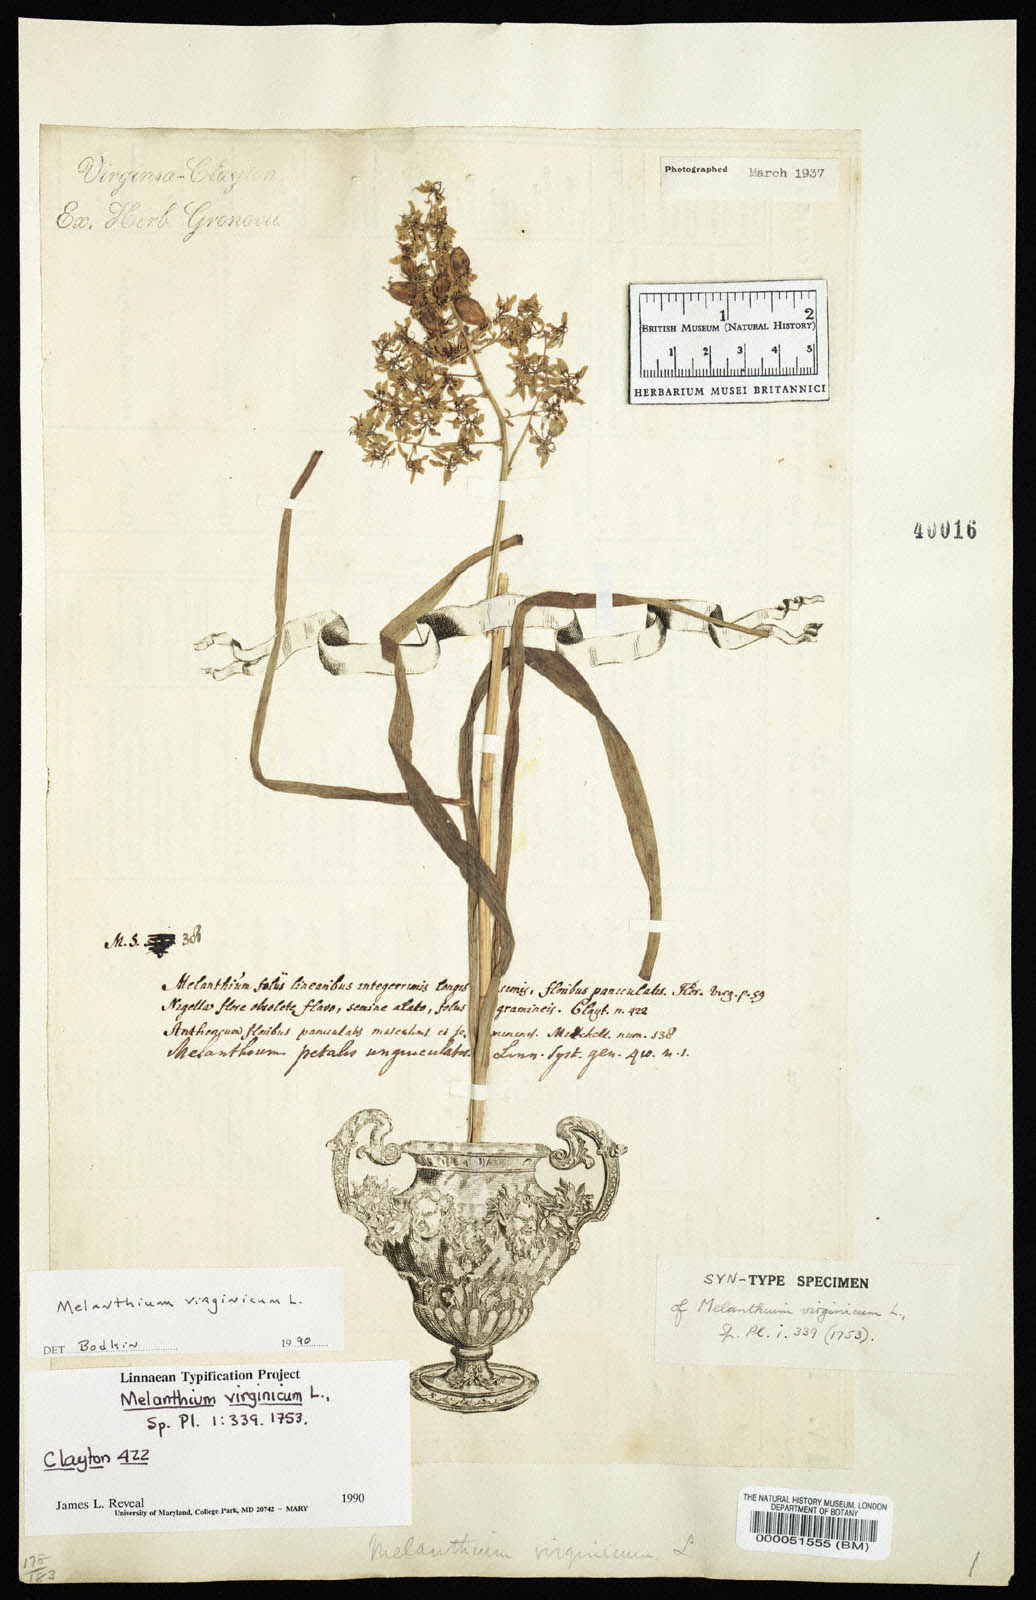 Virginia-Clayton
Ex. Herb Gronovii
Photographed March 1937
1 2
BRITISH MUSEUM (NATURAL HISTORY)
1 2 3 4 5
HERBARIUM MUSEI BRITANNICI
40016
M. S. 308
Melanthium foliis linearibus integerrimis longis simis, floribus paniculatis. Flor. Virg. p. 59
Nigella flore obsolete flavo, semine alato, foliis gramineis. Clayt. n. 422
Anthericum floribus paniculatis masculis et Mitchell. num. 538
Melanthium petalis unguiculatis. Linn. Syst. gen. 410. n. 1.
SYN-TYPE SPECIMEN
of Melanthium virginicum L.,
Sp. Pl. i. 339 (1753).
Melanthium virginicum L.
DET Bodkin 1990
Linnaean Typification Project
Melanthium virginicum L.,
Sp. Pl. 1:339. 1753.
Clayton 422
James L. Reveal 1990
University of Maryland, College Park, MD 20742 – MARY
THE NATURAL HISTORY MUSEUM, LONDON
DEPARTMENT OF BOTANY
000051555 (BM)
Melanthium virginicum. L
178
183
1